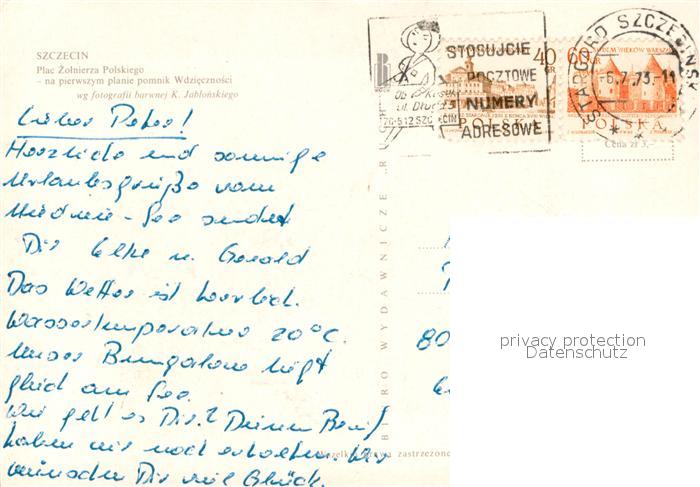 SZCZECIN
Plac Żołnierza Polskiego
– na pierwszym planie pomnik Wdzięczności
wg fotografii barwnej K. Jabłońskiego
Lieber Peter!
Herzliche und sonnige
Urlaubsgrüße vom
See sendet
Dir Elke u. Gerold
Das Wetter ist herrlich.
Wassertemperatur 20°C.
Unser Bungalow liegt
gleich am See.
Wie geht es Dir? Deinen Brief
haben wir noch erhalten. Wir
wünschen Dir viel Glück.
BIURO WYDAWNICZE „RUCH"
STOSUJCIE
POCZTOWE
NUMERY
ADRESOWE
70-512 SZCZECIN
40 GR
60 GR
POLSKA
POLSKA
STARGARD SZCZECIŃSKI
-6.7.73.-11
Cena zł 3,-
80
zastrzeżone
privacy protection
Datenschutz